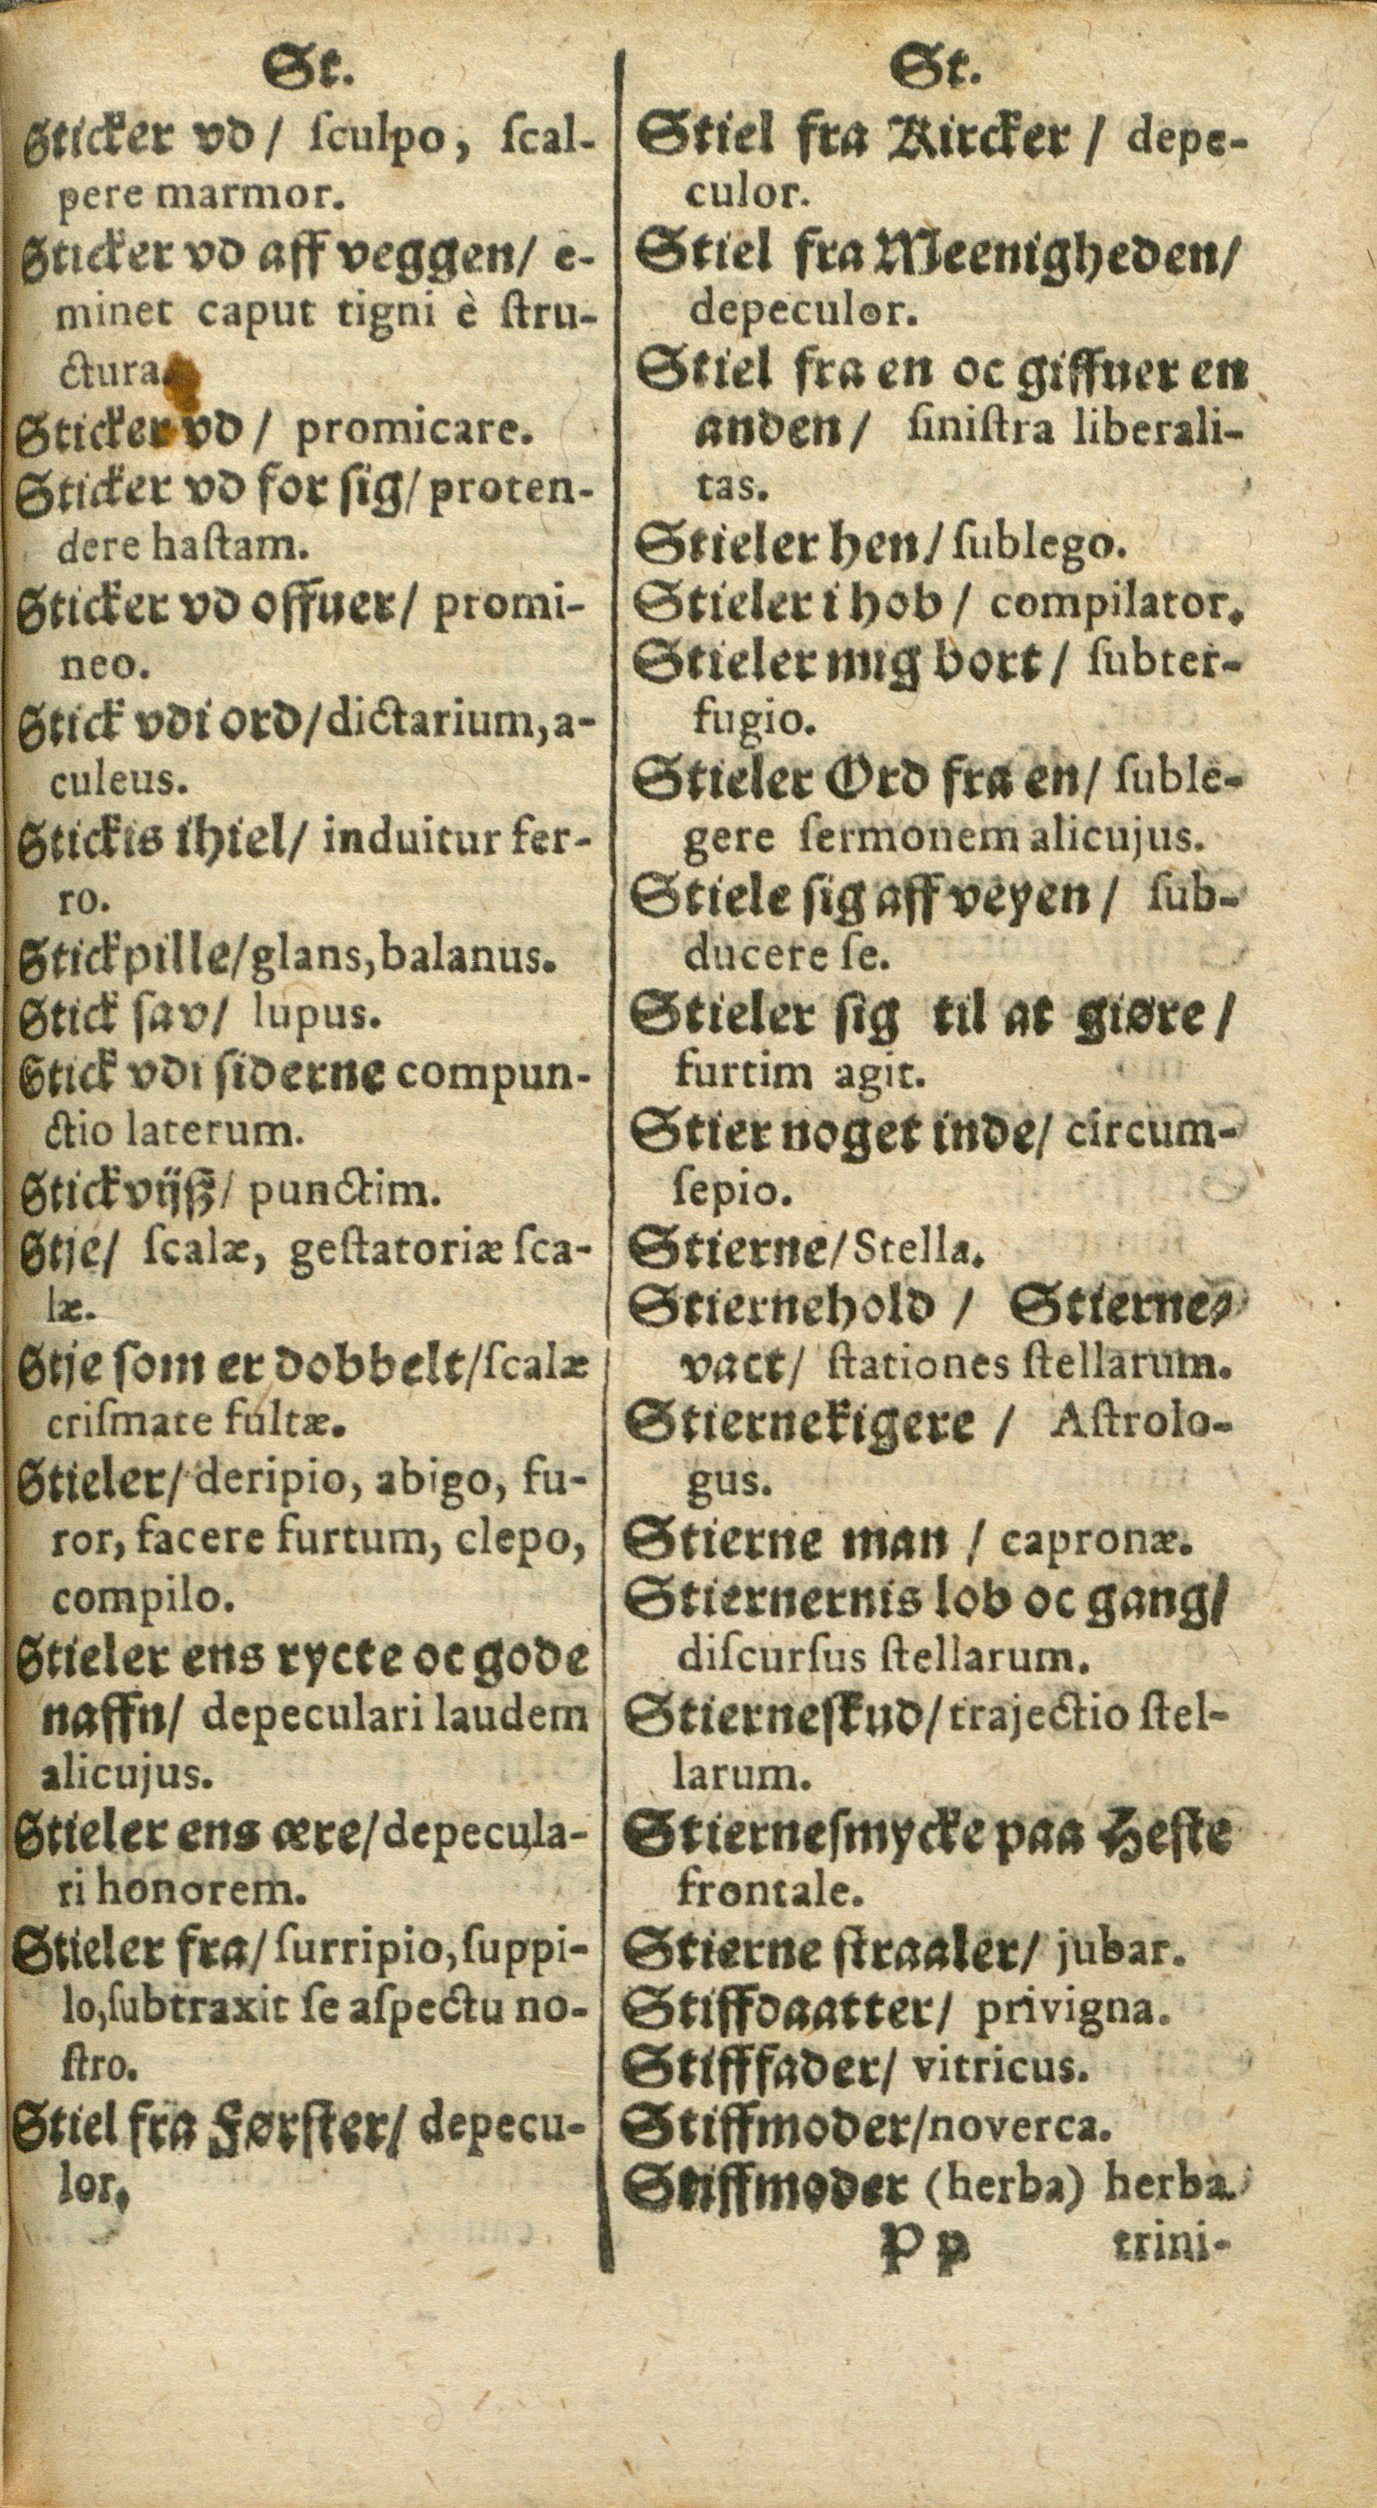 St.
Sticker vd / ſculpo, ſcal-
pere marmor.
Sticker vd aff veggen / e-
minet caput tigni è ſtru-
ctura.
Sticker vd / promicare.
Sticker vd for ſig / proten-
dere haſtam.
Sticker vd offuer / promi-
neo.
Stick vdi ord / dictarium, a-
culeus.
Stickis ihiel / induitur fer-
ro.
Stickpille / glans, balanus.
Stick ſav / lupus.
Stick vdi ſiderne compun-
ctio laterum.
Stickvijß / punctim.
Stje / ſcalæ, geſtatoriæ ſca-
læ.
Stje ſom er dobbelt / ſcalæ
eriſmate fultæ.
Stieler / deripio, abigo, fu-
ror, facere furtum, clepo,
compilo.
Stieler ens rycte oc gode
naffn / depeculari laudem
alicujus.
Stieler ens ære / depecula-
ri honorem.
Stieler fra / ſurripio, ſuppi-
lo, ſubtraxit ſe aſpectu no-
ſtro.
Stiel fra Førſter / depecu-
lor.
St.
Stiel fra Kircker / depe-
culor.
Stiel fra Meenigheden /
depeculor.
Stiel fra en oc giffuer en
anden / ſiniſtra liberali-
tas.
Stieler hen / ſublego.
Stieler i hob / compilator.
Stieler mig bort / ſubter-
fugio.
Stieler Ord fra en / ſuble-
gere ſermonem alicujus.
Stiele ſig aff veyen / ſub-
ducere ſe.
Stieler ſig til at giøre /
furtim agit.
Stier noget inde / circum-
ſepio.
Stierne / Stella.
Stiernehold / Stierne-
vact / ſtationes ſtellarum.
Stiernekigere / Aſtrolo-
gus.
Stierne man / capronæ.
Stiernernis lob oc gang /
diſcurſus ſtellarum.
Stierneſkud / trajectio ſtel-
larum.
Stierneſmycke paa Heſte
frontale.
Stierne ſtraaler / jubar.
Stiffdaatter / privigna.
Stifffader / vitricus.
Stiffmoder / noverca.
Stiffmoder (herba) herba
Pp trini-